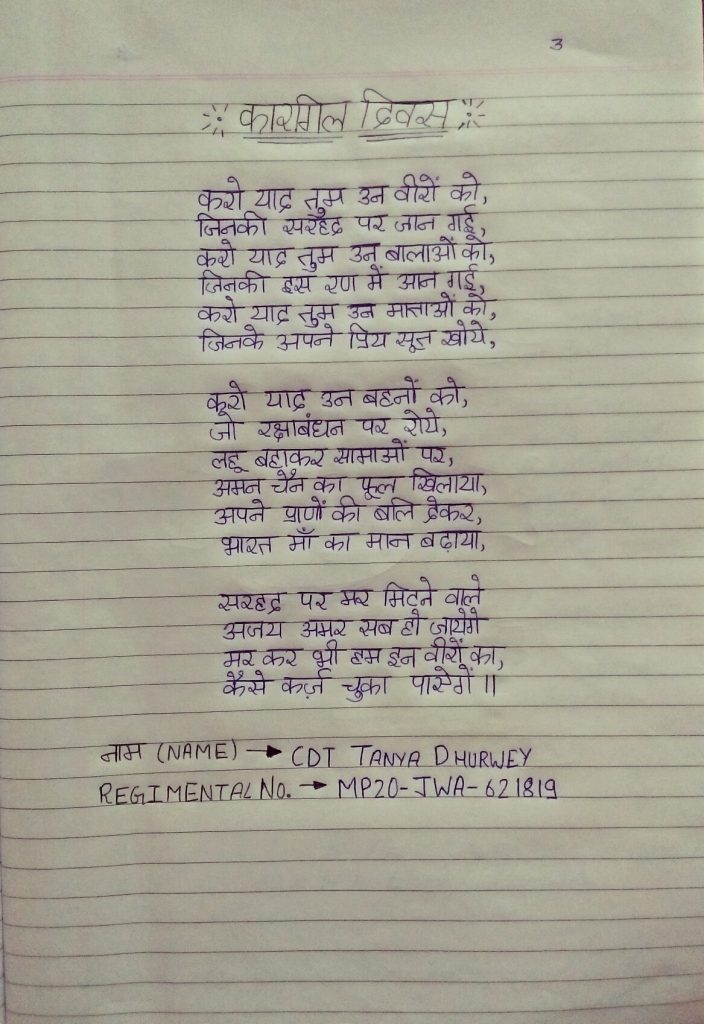 3
कारगिल दिवस
करो याद तुम उन वीरों को,
जिनकी सरहद पर जान गई,
करो याद तुम उन बालाओं को,
जिनकी इस रण में आन गई,
करो याद तुम उन माताओं को,
जिनके अपने प्रिय सूत खोये,
करो याद उन बहनों को,
जो रक्षाबंधन पर रोये,
लहू बहाकर सामाओं पर,
अमन चैन का फूल खिलाया,
अपने प्राणों की बलि देकर,
भारत माँ का मान बढ़ाया,
सरहद पर मर मिटने वाले
अजय अमर सब हो जायेगे
मर कर भी हम इन वीरों का,
कैसे कर्ज़ चुका पासेगें ॥
नाम (NAME) → CDT TANYA DHURWEY
REGIMENTAL No. → MP20-JWA-621819